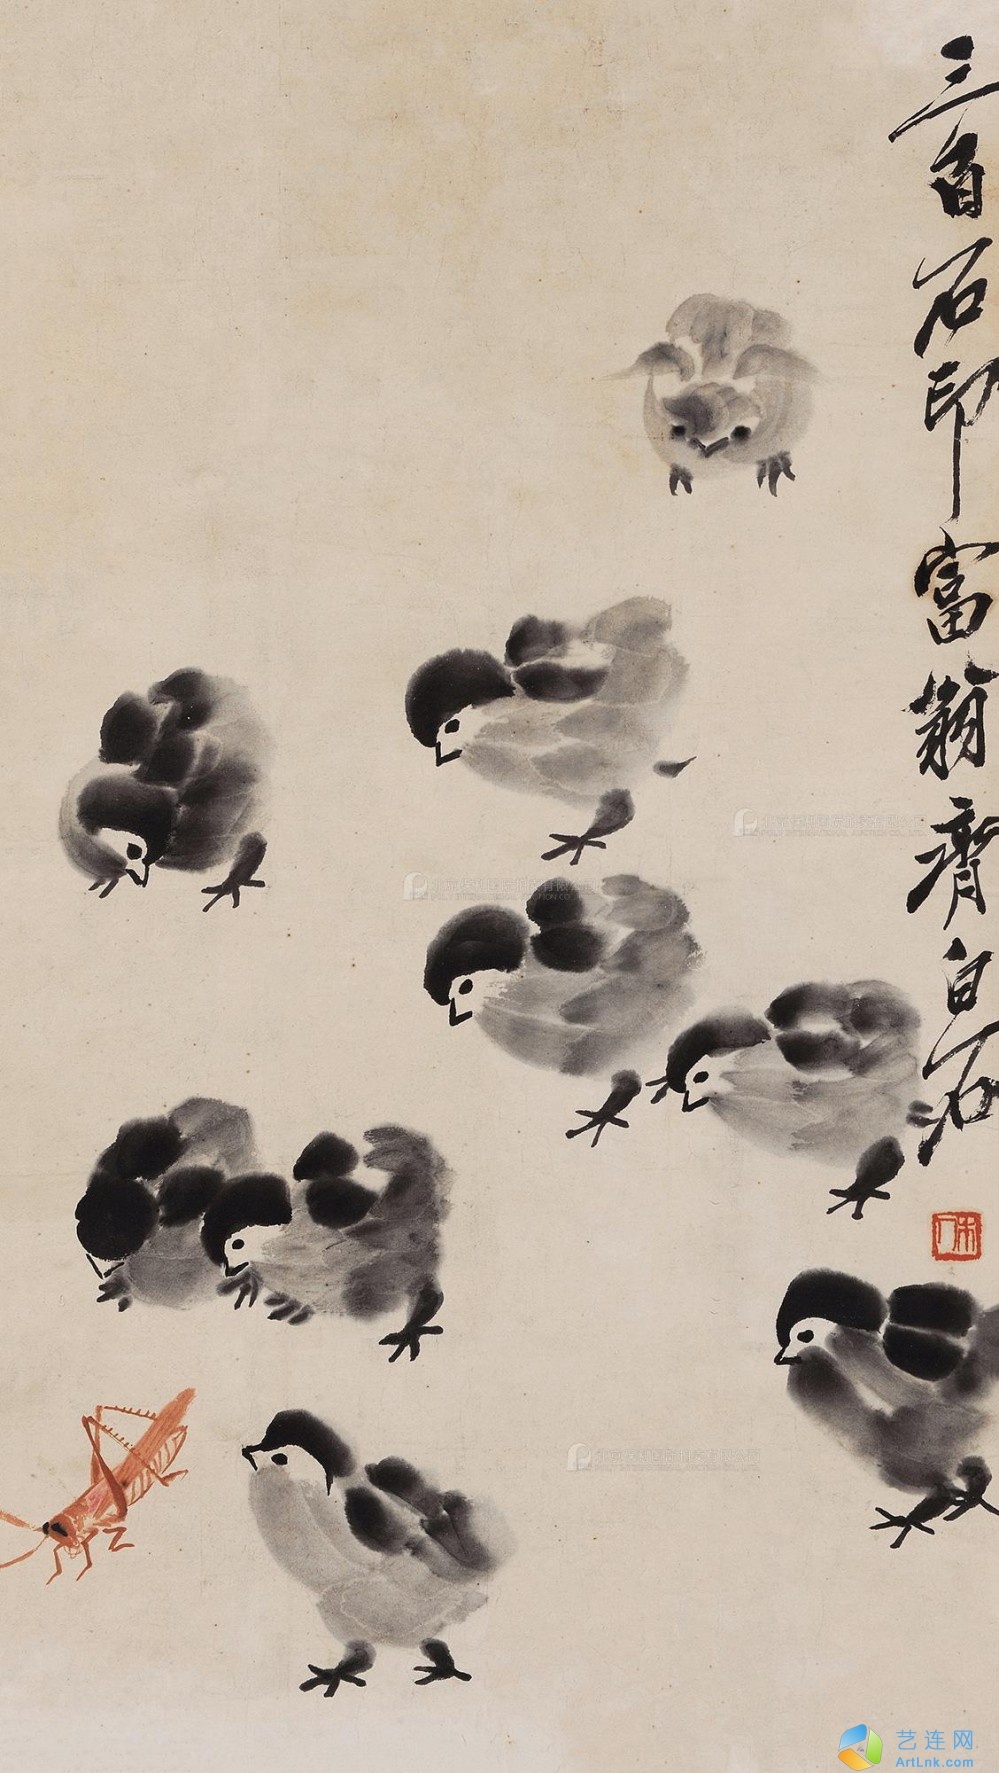 三百石印富翁齊白石
木人
艺连网
ArtLnk.com